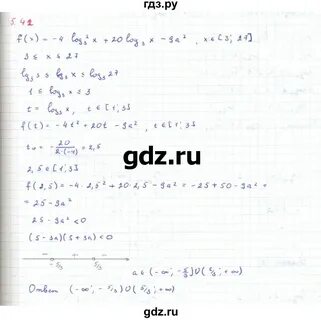 гдз.ру
5.42
f(x) = -4 log₃² x + 20 log₃ x - 9a², x ∈ [3; 27]
3 ≤ x ≤ 27
log₃ 3 ≤ log₃ x ≤ log₃ 27
1 ≤ log₃ x ≤ 3
t = log₃ x, t ∈ [1; 3]
f(t) = -4t² + 20t - 9a², t ∈ [1; 3]
t₀ = - 20 / 2·(-4) = 2,5
gdz.ru
2,5 ∈ [1; 3]
f(2,5) = -4·2,5² + 20·2,5 - 9a² = -25 + 50 - 9a² =
= 25 - 9a²
25 - 9a² < 0
(5 - 3a)(5 + 3a) < 0
- + -
-5/3 5/3
a ∈ (-∞; -5/3) U (5/3; +∞)
Ответ (-∞; -5/3) U (5/3; +∞)
gdz.ru